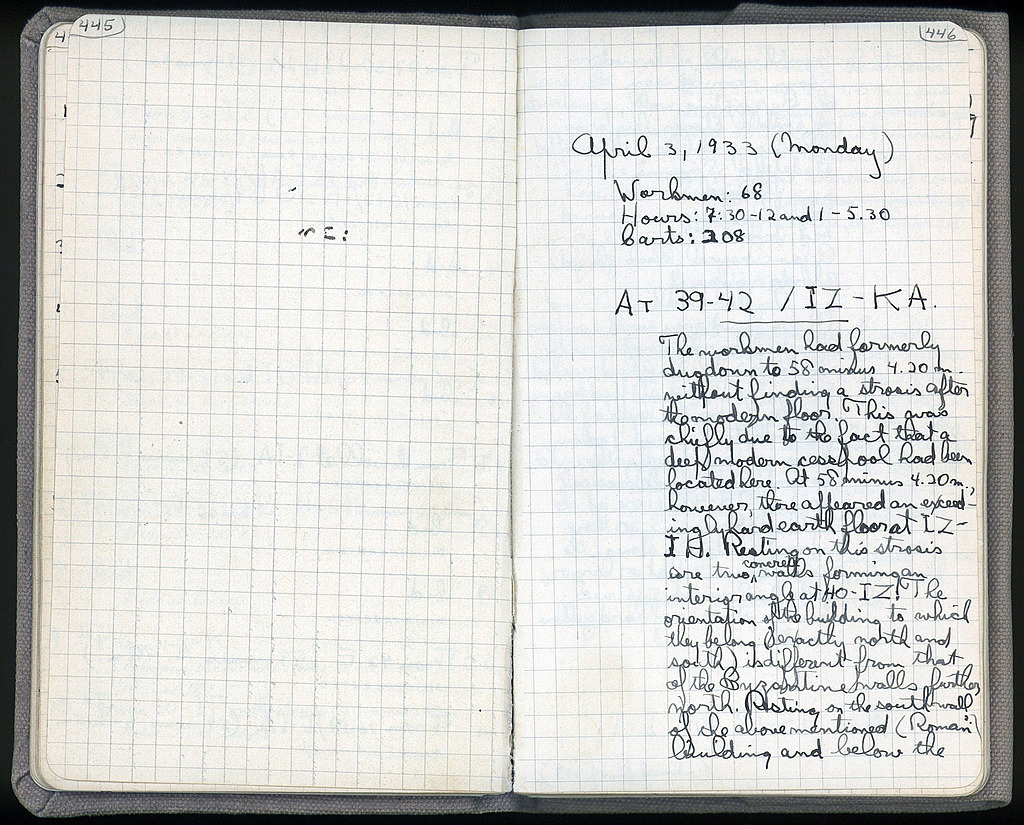 445
446
April 3, 1933 (Monday)
Workmen: 68
Hours: 7:30-12 and 1-5.30
Carts: 208
AT 39-42 / IZ-KA.
The workmen had formerly
dug down to 58 minus 4.20 m.
without finding a strosis after
the modern floor. This was
chiefly due to the fact that a
deep modern cesspool had been
located here. At 58 minus 4.20 m.,
however, there appeared an exceed-
ingly hard earth floor at IZ-
IH. Resting on this strosis
are two concrete walls forming an
interior angle at 40-IZ. The
orientation of the building to which
they belong (exactly north and
south) is different from that
of the Byzantine walls further
north. Resting on the south wall
of the above mentioned (Roman)
building and below the